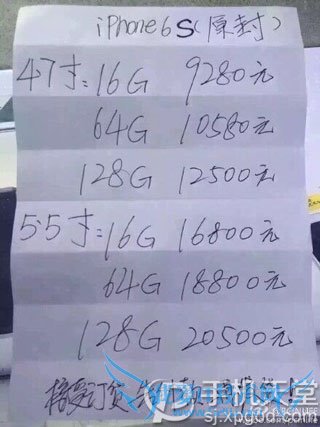 iPhone 6S(原封)
4.7寸:16G 9280元
64G 10580元
128G 12500元
5.5寸:16G 16800元
64G 18800元
128G 20500元
接受订货
手机天堂
sj.xpgod.com